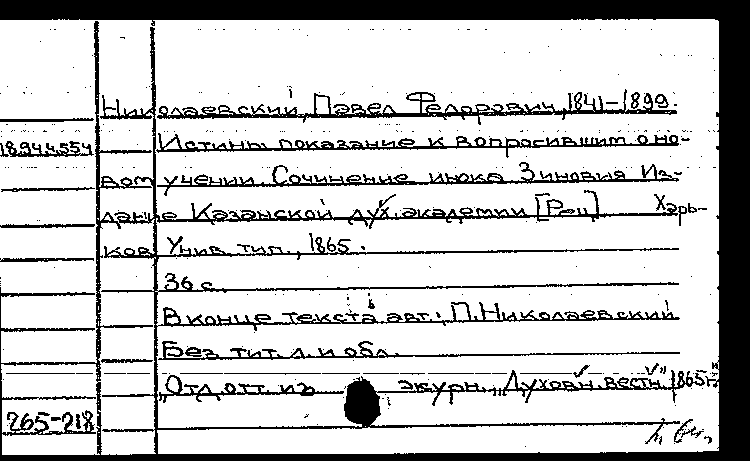 Николаевский, Павел Федорович, 1841-1899.
18944554 Истины показание к вопросившим о но-
вом учении. Сочинение инока Зиновия Из-
дание Казанской дух. академии [Рец] Харь-
ков Унив. тип., 1865.
36 с.
В конце текста авт.: П. Николаевский
Без тит. л. и обл.
"Отд. отт. из журн. "Духовн. вестн." 1865 г."
265-218